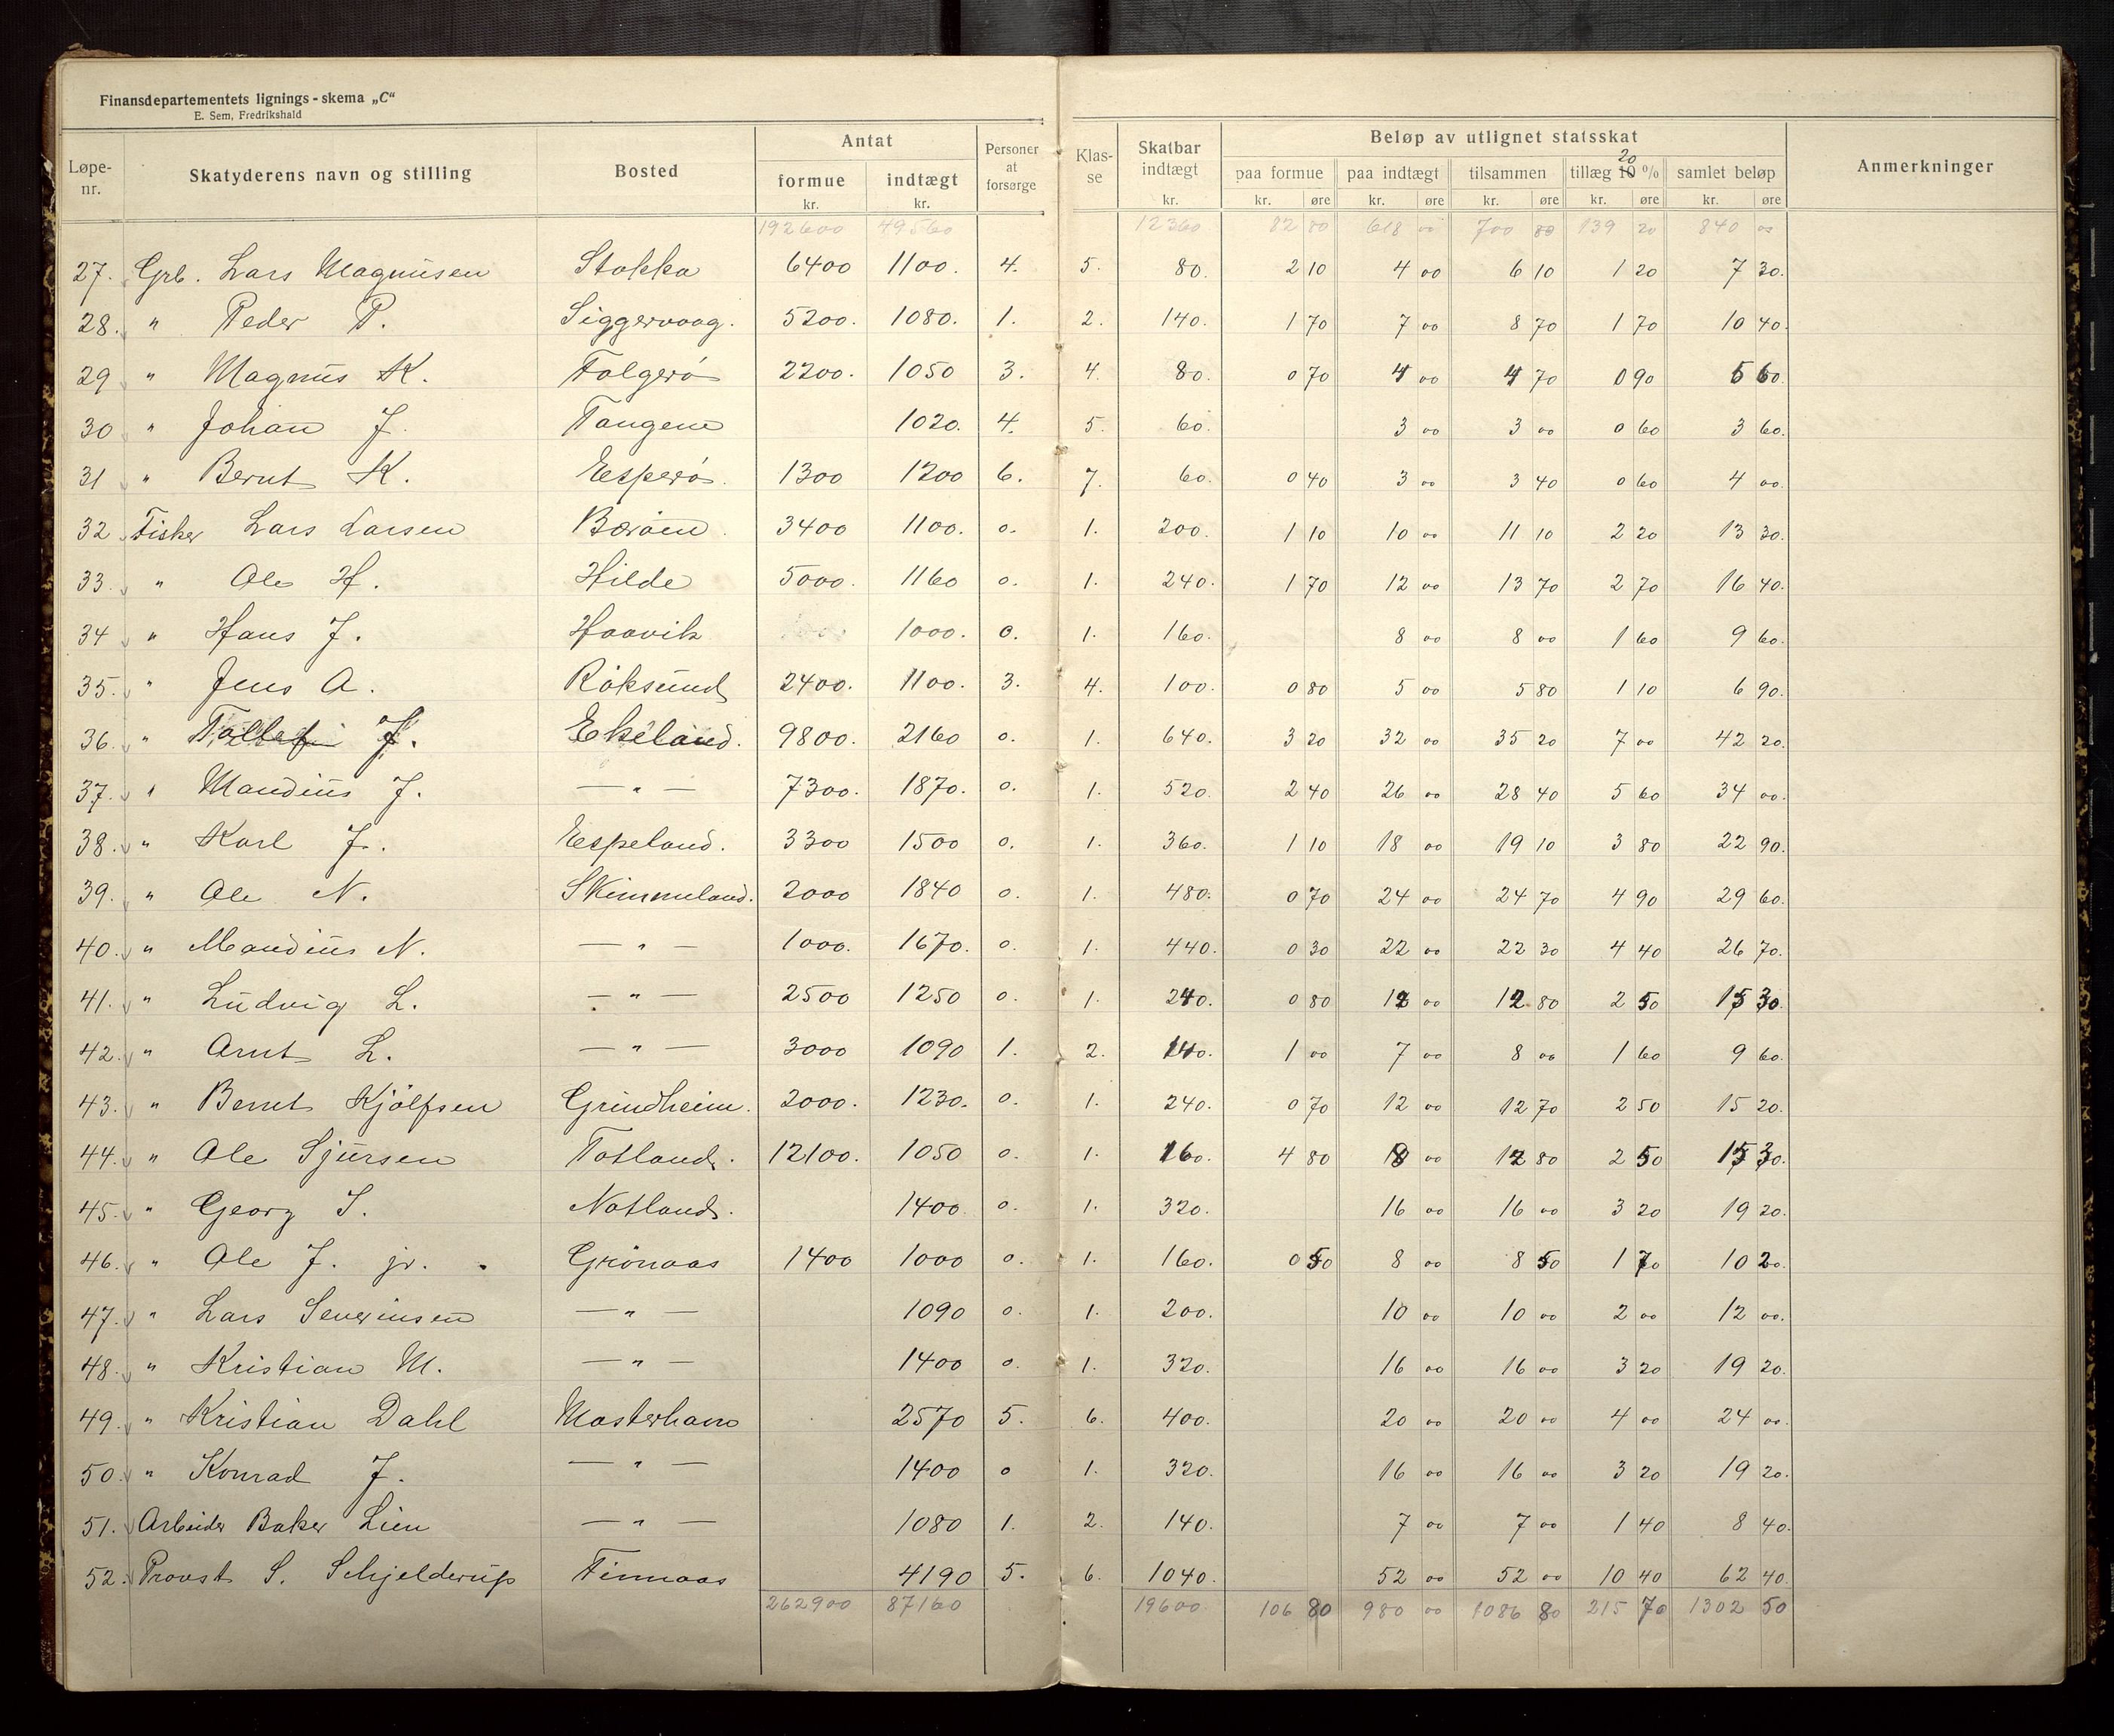 Finansdepartementets lignings-skema „C“
E. Sem, Fredrikshald
Løpe-nr. Skatyderens navn og stilling Bosted Antat formue kr. indtægt kr. Personer at forsørge Klas-se Skatbar indtægt kr. Beløp av utlignet statsskat paa formue kr. øre paa indtægt kr. øre tilsammen kr. øre tillæg 10 20 % kr. øre samlet beløp kr. øre Anmerkninger
192600 49560 12360 82 80 618 00 700 80 139 20 840 00
27. Grb. Lars Magnusen Stokka 6400 1100. 4. 5. 80. 2 10 4 00 6 10 1 20 7 30.
28. " Peder P. Siggervaag. 5200. 1080. 1. 2. 140. 1 70 7 00 8 70 1 70 10 40.
29 " Magnus K. Folgerø 2200. 1050 3. 4. 80. 0 70 4 00 4 70 0 90 5 60.
30 " Johan J. Tangene 1020. 4. 5. 60. 3 00 3 00 0 60 3 60.
31 " Bernt K. Eesperø. 1300 1200 6. 7. 60. 0 40 3 00 3 40 0 60 4 00.
32 Fisker Lars Larsen Børøen. 3400 1100. 0. 1. 200. 1 10 10 00 11 10 2 20 13 30.
33. " Ole H. Hilde 5000. 1160 0. 1. 240. 1 70 12 00 13 70 2 70 16 40.
34 " Hans J. Haavik 1000. 0. 1. 160. 8 00 8 00 1 60 9 60.
35. " Jens A. Röksund 2400. 1100. 3. 4. 100. 0 80 5 00 5 80 1 10 6 90.
36. " J. Ekeland. 9800. 2160 0. 1. 640. 3 20 32 00 35 20 7 00 42 20.
37. " Mandius J. — " — 7300. 1870. 0. 1. 520. 2 40 26 00 28 40 5 60 34 00.
38. " Karl J. Eespeland. 3300 1500 0. 1. 360. 1 10 18 00 19 10 3 80 22 90.
39. " Ole N. Skimmeland. 2000 1840 0. 1. 480. 0 70 24 00 24 70 4 90 29 60.
40. " Mandius N. — " — 1000. 1670. 0. 1. 440. 0 30 22 00 22 30 4 40 26 70.
41. " Ludvig L. — " — 2500 1250 0. 1. 240. 0 80 12 00 12 80 2 50 15 30.
42. " Arnt L. — " — 3000 1090 1. 2. 140. 1 00 7 00 8 00 1 60 9 60.
43. " Bernt Kjølfsen Grindheim. 2000. 1230. 0. 1. 240. 0 70 12 00 12 70 2 50 15 20.
44. " Ole Sjursen Totland. 12100. 1050 0. 1. 160. 4 80 8 00 12 80 2 50 15 30.
45. " Georg S. Notland. 1400 0. 1. 320. 16 00 16 00 3 20 19 20.
46. " Ole J. jr. Grönaas 1400 1000 0. 1. 160. 0 50 8 00 8 50 1 70 10 20.
47. " Lars Severinsen — " — 1090 0. 1. 200. 10 00 10 00 2 00 12 00.
48. " Kristian M. — " — 1400 0. 1. 320. 16 00 16 00 3 20 19 20.
49. " Kristian Dahl Mosterhavn 2570 5. 6. 400. 20 00 20 00 4 00 24 00.
50. " Konrad J. — " — 1400 0 1. 320. 16 00 16 00 3 20 19 20.
51. Arbeider Baker Lien — " — 1080 1. 2. 140. 7 00 7 00 1 40 8 40.
52. Provst S. Schjelderup Finnaas 4190 5. 6. 1040. 52 00 52 00 10 40 62 40.
262900 87160 19600 106 80 980 00 1086 80 215 70 1302 50